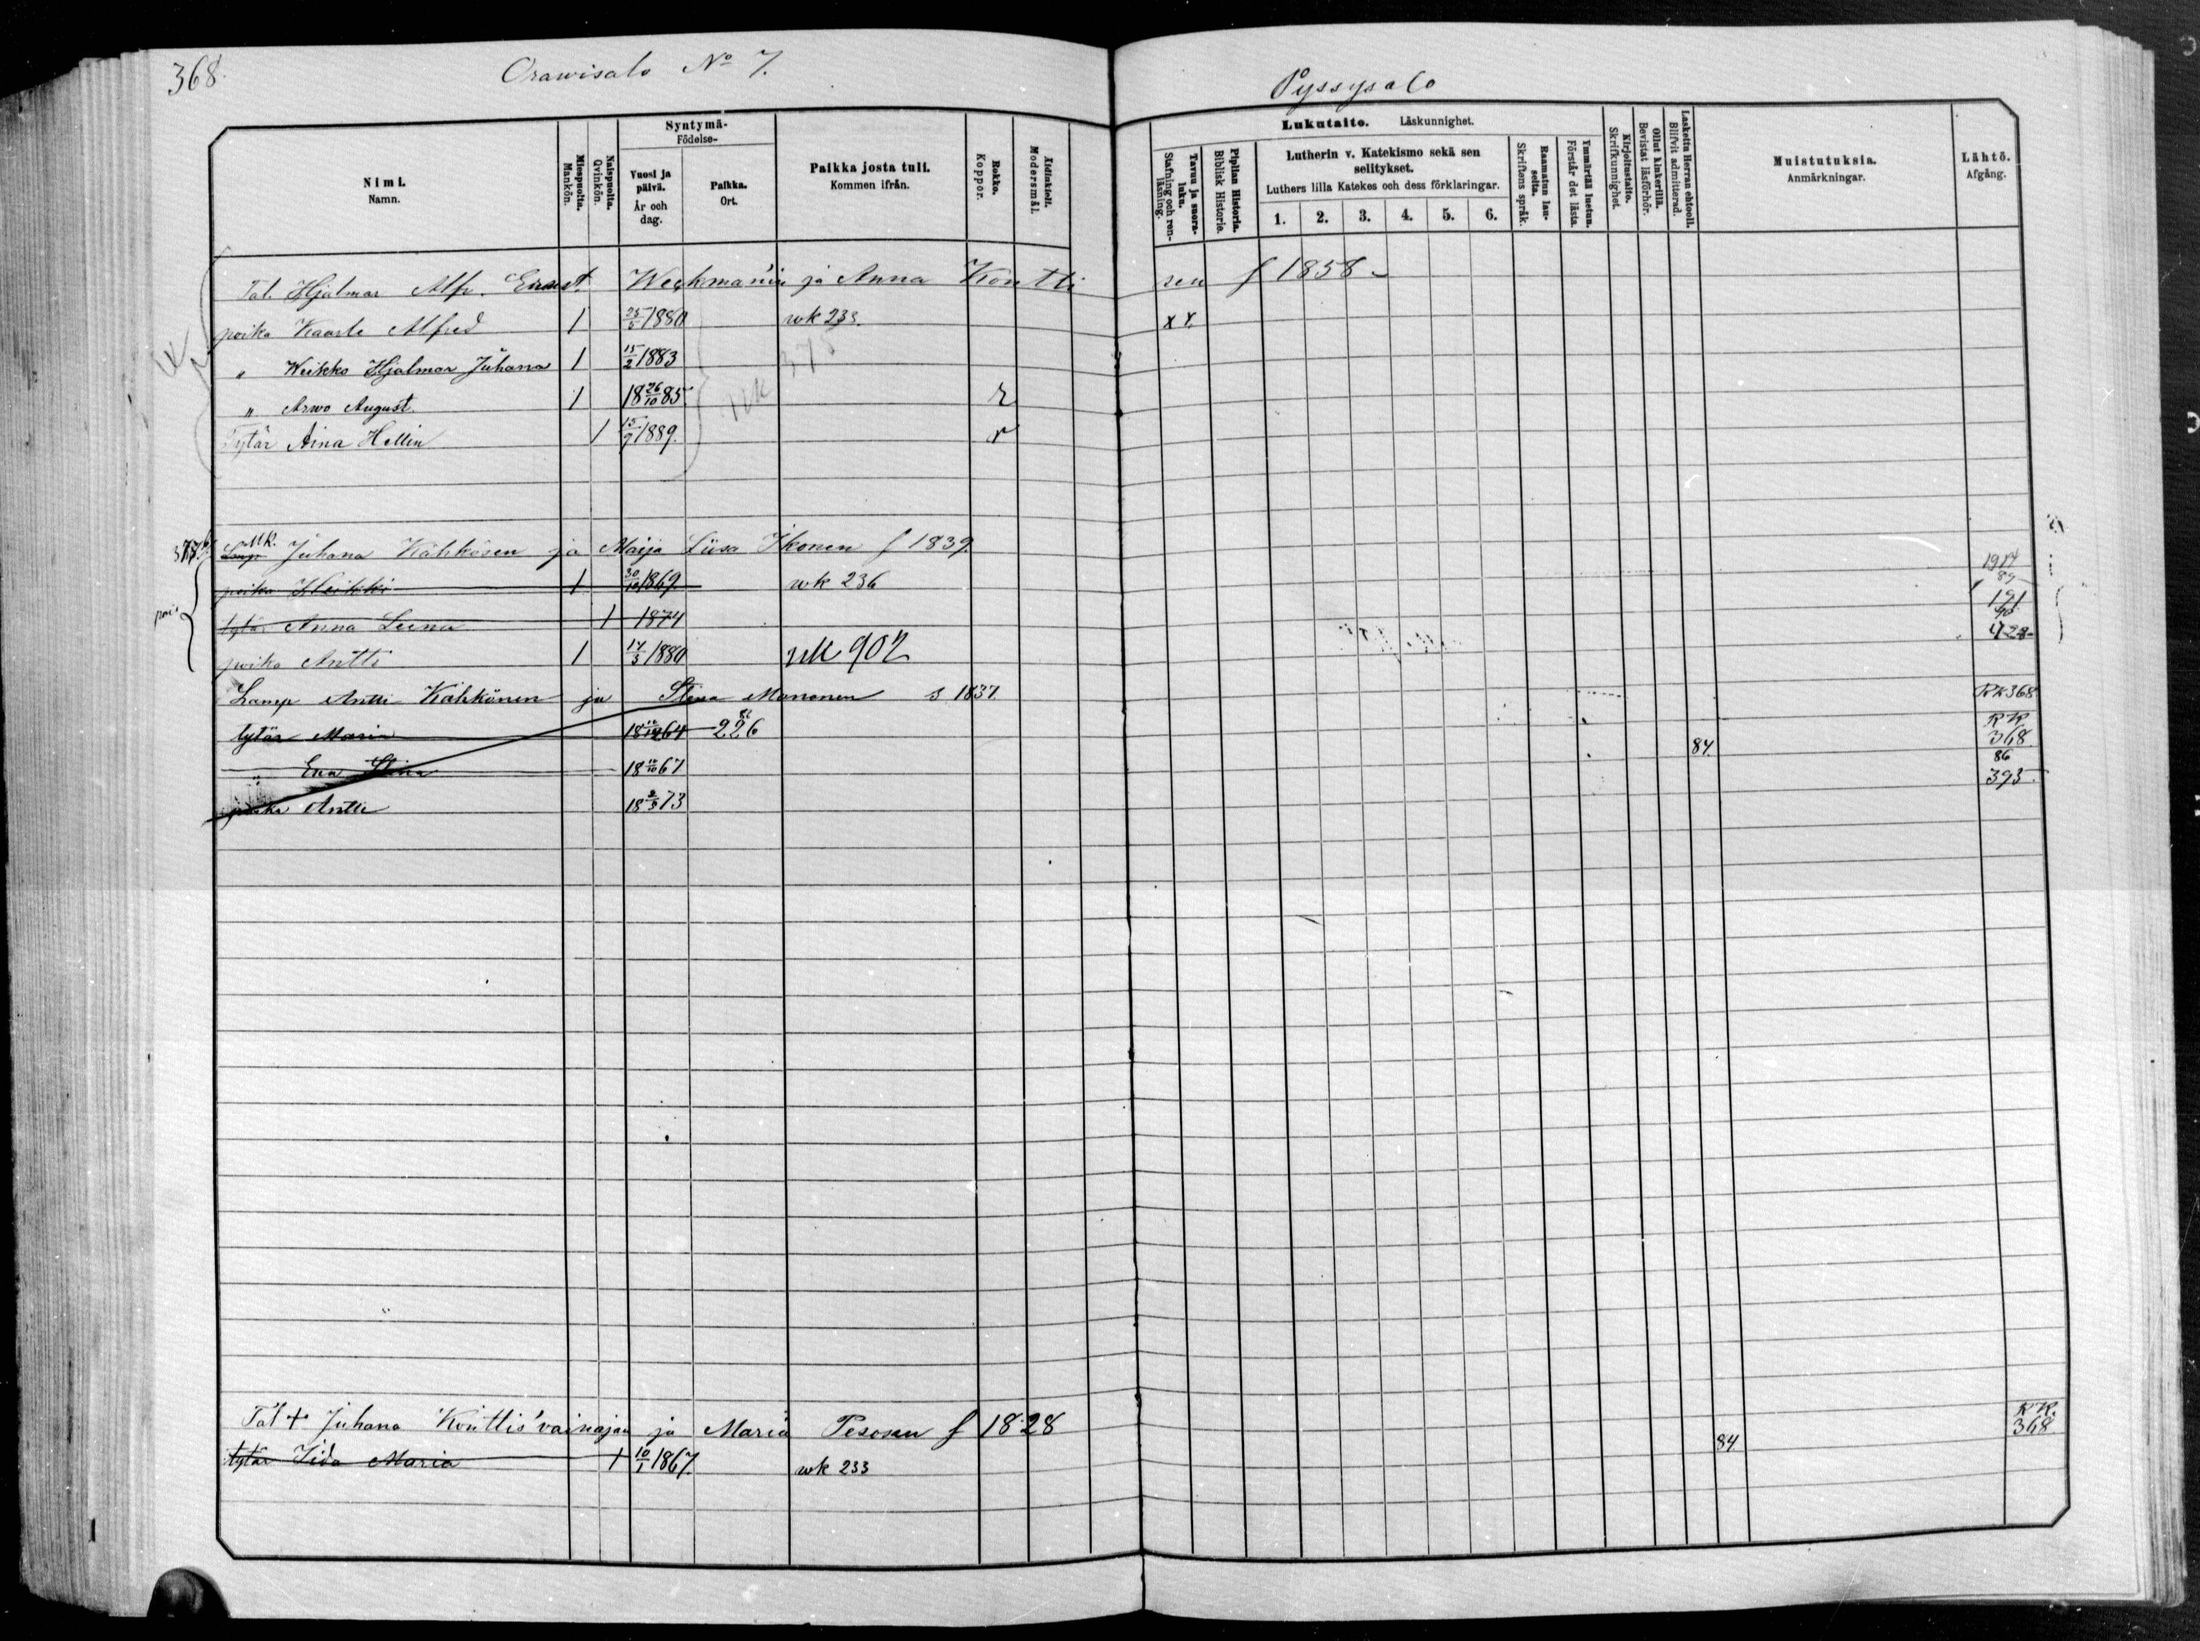 368.
Orawisalo No 7.
Pyssysalo
Nimi.
Namn.
Miespuolta.
Mankön.
Naispuolta.
Qvinkön.
Syntymä-
Födelse-
Vuosi ja päivä.
År och dag.
Paikka.
Ort.
Paikka josta tuli.
Kommen ifrån.
Rokko.
Koppor.
Äidinkieli.
Modersmål.
Lukutaito. Läskunnighet.
Tavuu ja suora-luku.
Stafning och ren-läsning.
Piplian Historia.
Biblisk Historie.
Lutherin v. Katekismo sekä sen selitykset.
Luthers lilla Katekes och dess förklaringar.
1. 2. 3. 4. 5. 6.
Raamatun lau-seita.
Skriftens språk.
Ymmärtää luetun.
Förstår det lästa.
Kirjoitustaito.
Skrifkunnighet.
Ollut kinkerillä.
Bevistat läsförhör.
Laskettu Herran ehtooll.
Blifvit admitterad.
Muistutuksia.
Anmärkningar.
Lähtö.
Afgång.
Tal. Hjalmar Alfr. Ernest. Weckman'in ja Anna Kontti ren f 1858
poika Kaarle Alfred 1 25/5 1880 wk 233. x x.
" Weikko Hjalmar Juhana 1 15/2 1883 375
" Arwo August 1 18 26/10 85 r
Tytär Aina Hellin 1 15/9 1889. r
Mk.
Lamp Juhana Kähkösen ja Maija Liisa Ikonen f 1839.
poika Heikki 1 30/10 1869. wk 236
tytär Anna Leena 1 1874
poika Antti 1 17/3 1880 rk 902
Lamp Antti Kähkönen ja Stina Mononen s 1837. RK 368
tytär Maria 18 64 226 84. RK 368.
" Eva Stina 18 67 86 393
poika Antti 18 73
Tal + Juhana Konttis' vainajan ja Maria Pesosen f 1828
tytär Iida Maria 1 10/1 1867. wk 233 84 RK. 368